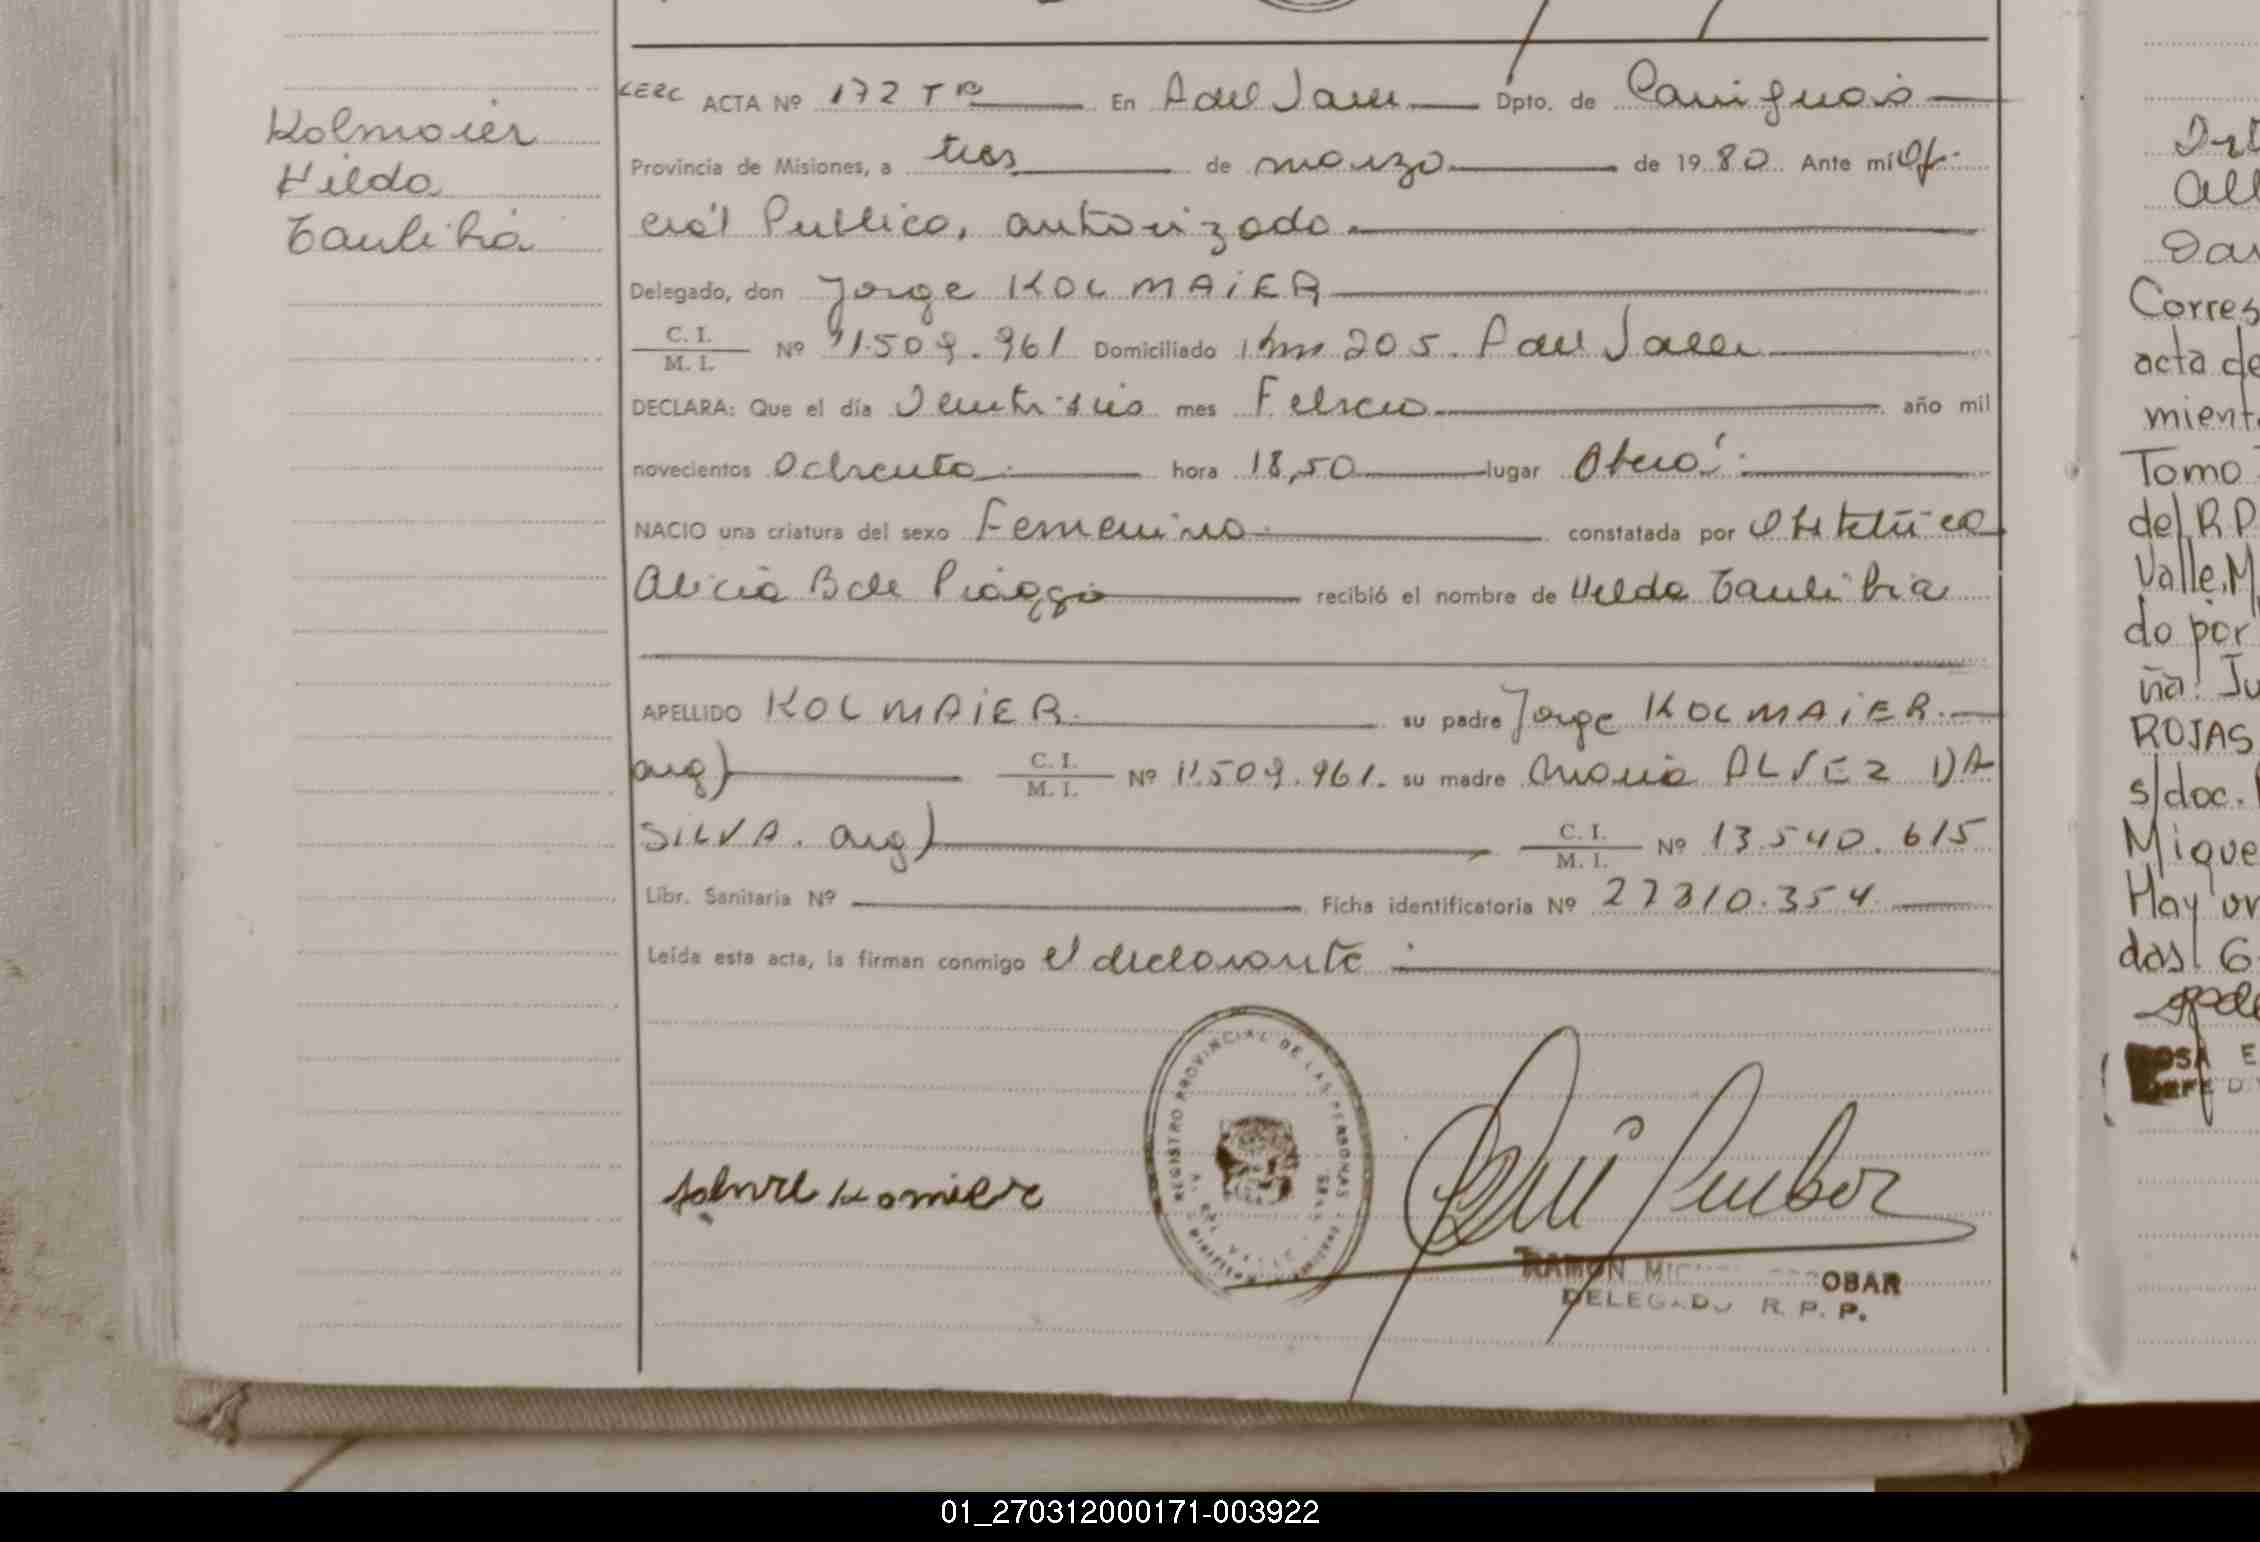 Kolmaier
Hilda
LERC ACTA Nº 172 TB En A del Valle Dpto. de Cainguás
Provincia de Misiones, a tres de marzo de 1980 Ante mí Ofi-
cial Publico, autorizado
Delegado, don Jorge KOLMAIER
C. I.
M. I. Nº 11.509.961 Domiciliado km 205. A del Valle
DECLARA: Que el día Veintiseis mes Febrero año mil
novecientos Ochenta hora 18,50 lugar Oberá
NACIO una criatura del sexo Femenino constatada por Obstetrica
Alicia B de Piaggio recibió el nombre de Hilda
APELLIDO KOLMAIER su padre Jorge KOLMAIER.
arg) C. I.
M. I. Nº 11.509.961. su madre Maria ALVEZ DA
SILVA. arg) C. I.
M. I. Nº 13.540.615
Libr. Sanitaria Nº Ficha identificatoria Nº 27810.354
Leída esta acta, la firman conmigo el declarante
REGISTRO PROVINCIAL DE LAS PERSONAS
RAMON OBAR
DELEGADO R. P. P.
Corres
acta de
mient
Tomo
del R.P
Valle, M
do por
ña: Ju
ROJAS
s/doc.
Migue
Hay
das 6
OSA E
01_270312000171-003922